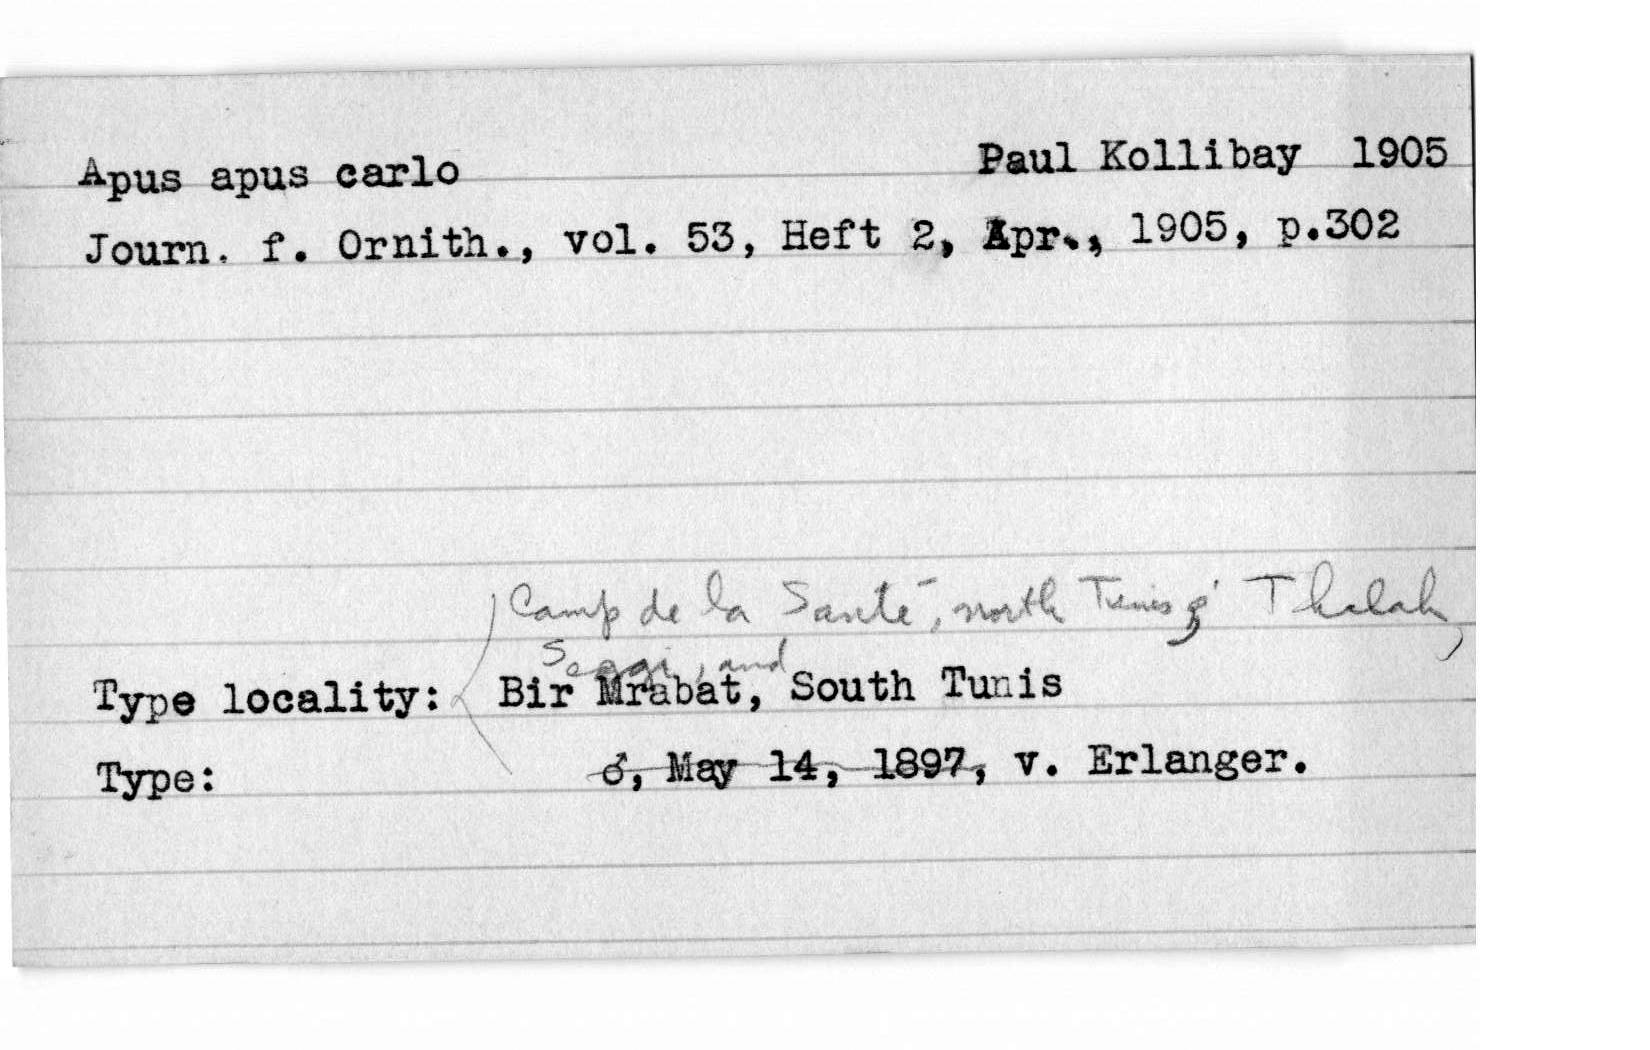 Apus apus carlo Paul Kollibay 1905
Journ. f. Ornith., vol. 53, Heft 2, Apr., 1905, p.302
Camp de la Santé, north Tunis; Thalah,
Seggi, and
Type locality: Bir Mrabat, South Tunis
Type: ♂, May 14, 1897, v. Erlanger.